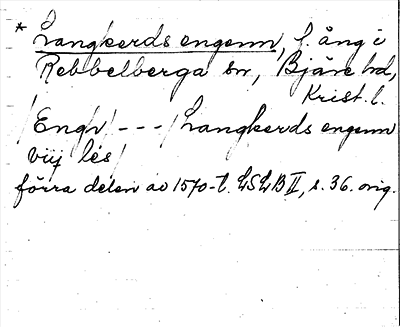 * Langkerds engenn, f. äng i
Rebbelberga sn, Bjäre hd,
Krist. l.
/Engh/ - - - /Langkerds engenn
viij les/
förra delen av 1570-t. LSLB II, s. 36. orig.